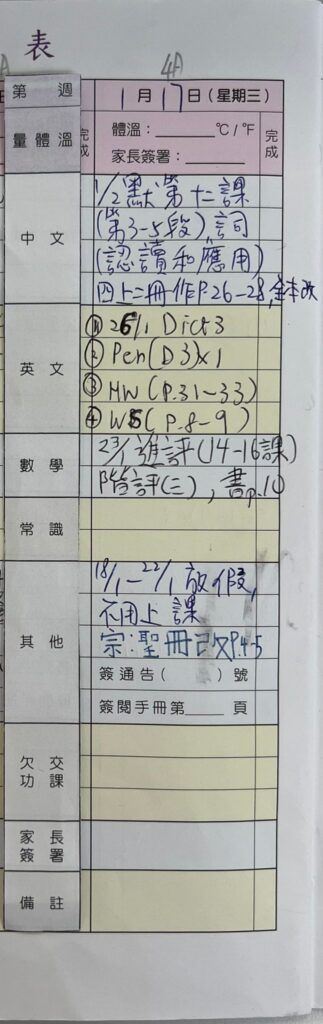 表
4A
第 週
1月17日(星期三)
量體溫
完成
體溫：______°C/°F
家長簽署：______
完成
中文
1/2默第十二課
(第3-5段),詞
(認讀和應用)
四上二冊作P.26-28,
英文
① 26/1 Dict 3
② Pen(D3)x1
③ HW(P.31-33)
④ WS(P.8-9)
數學
23/1進評(14-16課)
階評(三),書p.10
常識
其他
18/1-22/1放假,
不用上課
宗:聖冊改P.4-5
簽通告( )號
簽閱手冊第____頁
欠交
功課
家長
簽署
備註